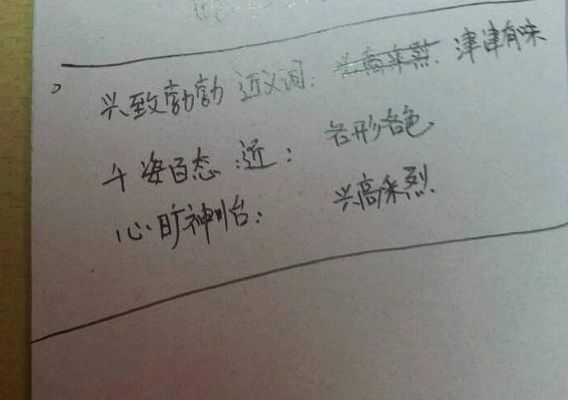 兴致勃勃 近义词：兴高采烈. 津津有味
千姿百态 近： 各形各色
心旷神怡： 兴高采烈.